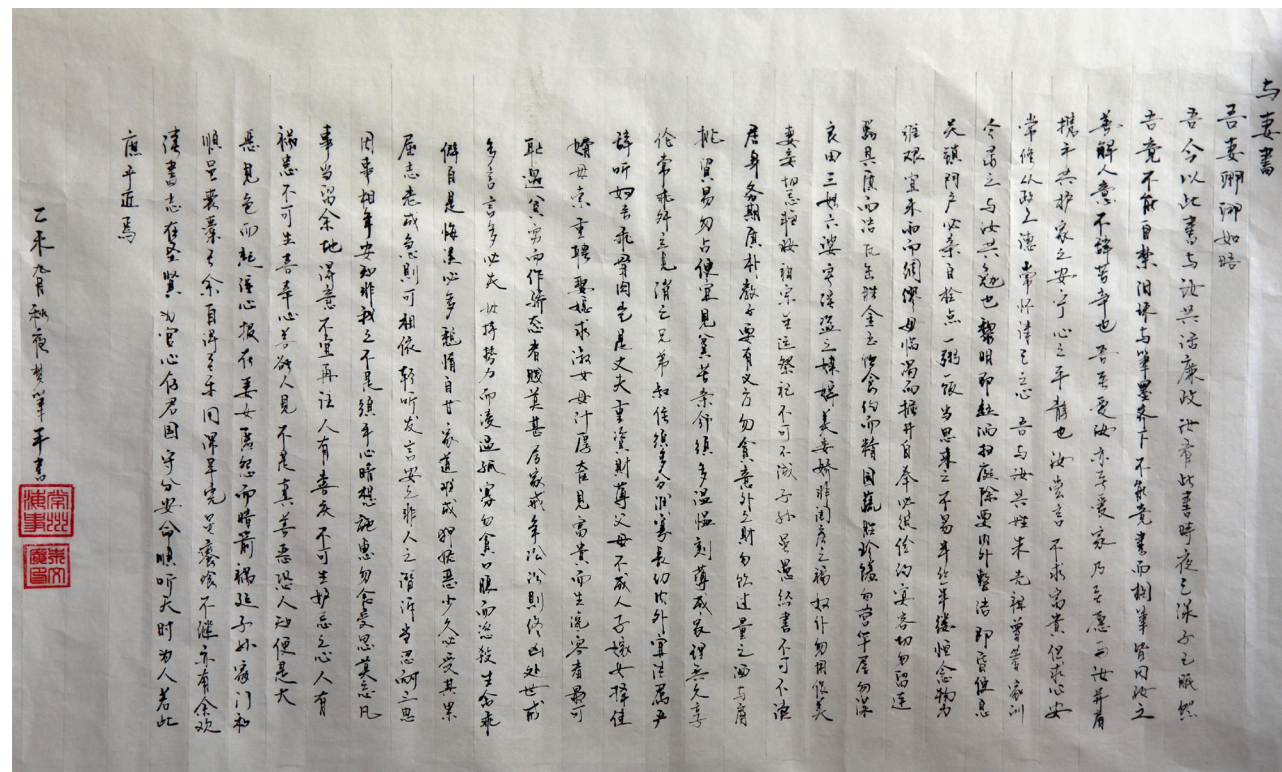 与妻书
吾妻卿卿如晤
吾今以此书与汝共话廉政汝看此书时夜已深子已眠然
吾竟不能自禁泪珠与笔墨齐下不能竟书而搁笔皆因汝之
善解人意不辞苦辛也吾至爱汝亦至爱家乃至愿与汝并肩
携手共护家之安宁心之平静也汝尝言不求富贵但求心安
常修从政之德常怀律己之心吾与汝共姓朱先祖曾著家训
今录之与汝共勉也黎明即起洒扫庭除要内外整洁即昏便息
关锁门户必亲自检点一粥一饭当思来之不易半丝半缕恒念物力
维艰宜未雨而绸缪毋临渴而掘井自奉必须俭约宴客切勿留连
器具质而洁瓦缶胜金玉饮食约而精园蔬胜珍馐勿营华屋勿谋
良田三姑六婆实淫盗之媒婢美妾娇非闺房之福奴仆勿用俊美
妻妾切忌艳妆祖宗虽远祭祀不可不诚子孙虽愚经书不可不读
居身务期质朴教子要有义方勿贪意外之财勿饮过量之酒与肩
挑贸易勿占便宜见贫苦亲邻须多温恤刻薄成家理无久享
伦常乖舛立见消亡兄弟叔侄须多分润寡长幼内外宜法属严
辞听妇言乖骨肉岂是丈夫重资财薄父母不成人子嫁女择佳
婿毋索重聘娶媳求淑女毋计厚奁见富贵而生谗容者最可
耻遇贫穷而作骄态者贱莫甚居家戒争讼讼则终凶处世戒
多言言多必失毋恃势力而凌逼孤寡勿贪口腹而恣杀生禽乖
僻自是悔误必多颓惰自甘家道难成狎昵恶少久必受其累
屈志老成急则可相依轻听发言安知非人之谮诉当忍耐三思
因事相争安知非我之不是须平心暗想施惠勿念受恩莫忘凡
事当留余地得意不宜再往人有喜庆不可生妒忌之心人有
祸患不可生喜幸心善欲人见不是真善恶恐人知便是大
恶见色而起淫心报在妻女匿怨而暗箭祸延子孙家门和
顺虽饔飧不继亦有余欢
读书志在圣贤为官心存君国守分安命顺听天时为人若此
庶乎近焉
乙未九月秋夜梦笔平书